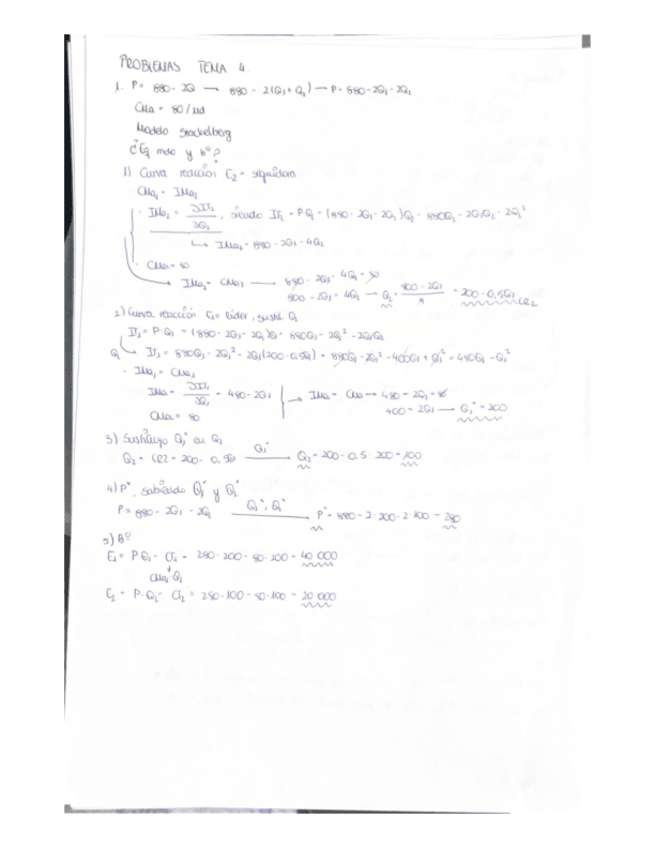 PROBLEMAS TEMA 4
1. P = 880 - 2Q → 880 - 2(Q1 + Q2) → P = 880 - 2Q1 - 2Q2
CMa = 80/ud
Modelo Stackelberg
¿Eq mdo y bº?
1) Curva reacción E2 = seguidora
CMa2 = IMa2
· IMa2 = ∂IT2/∂Q2, siendo IT2 = P·Q2 = (880 - 2Q1 - 2Q2)Q2 = 880Q2 - 2Q1Q2 - 2Q2²
↳ IMa2 = 880 - 2Q1 - 4Q2
· CMa = 80
IMa2 = CMa2 → 880 - 2Q1 - 4Q2 = 80
800 - 2Q1 = 4Q2 → Q2 = (800 - 2Q1)/4 = 200 - 0,5Q1 CR2
2) Curva reacción E1 = líder, sust Q2
IT1 = P·Q1 = (880 - 2Q1 - 2Q2)Q1 = 880Q1 - 2Q1² - 2Q1Q2
Q2 ↳ IT1 = 880Q1 - 2Q1² - 2Q1(200 - 0,5Q1) = 880Q1 - 2Q1² - 400Q1 + Q1² = 480Q1 - Q1²
· IMa1 = CMa1
IMa = ∂IT1/∂Q1 = 480 - 2Q1 → IMa = CMa → 480 - 2Q1 = 80
CMa = 80 400 = 2Q1 → Q1* = 200
3) Sustituyo Q1* en Q2
Q2 = CR2 = 200 - 0,5Q1 Q1* → Q2 = 200 - 0,5·200 = 100
4) P*, sabiendo Q1* y Q2*
P = 880 - 2Q1 - 2Q2 Q1*, Q2* → P* = 880 - 2·200 - 2·100 = 280
5) Bº
E1 = P·Q1 - CT1 = 280·200 - 80·200 = 40 000
CMa1·Q1
E2 = P·Q2 - CT2 = 280·100 - 80·100 = 20 000